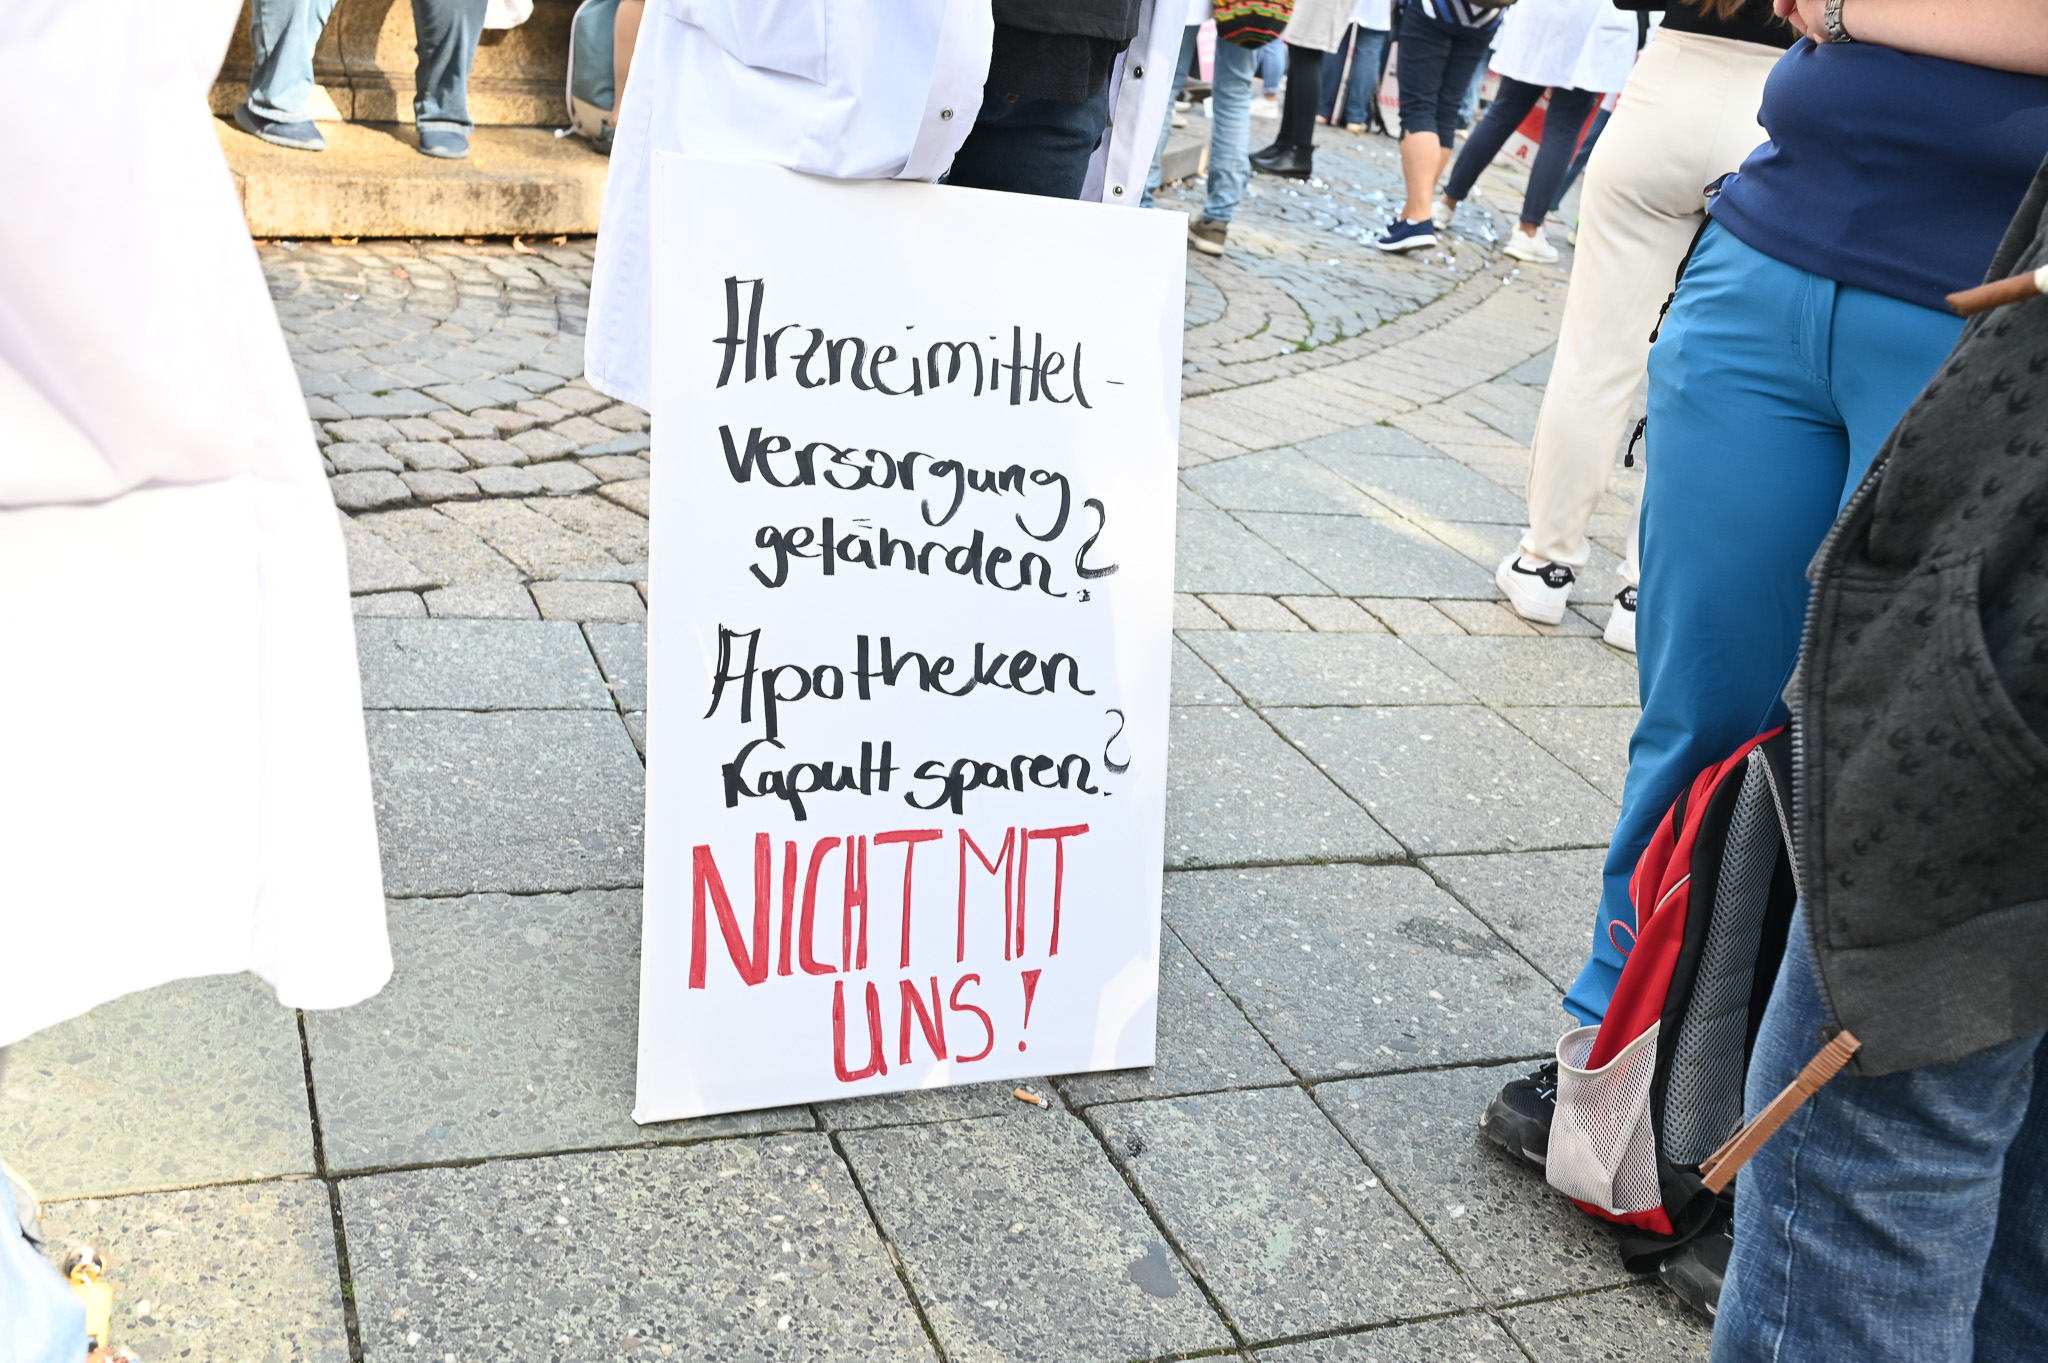 Arzneimittel-
versorgung
gefährden?
Apotheken
Kaputt sparen?
NICHT MIT
UNS!